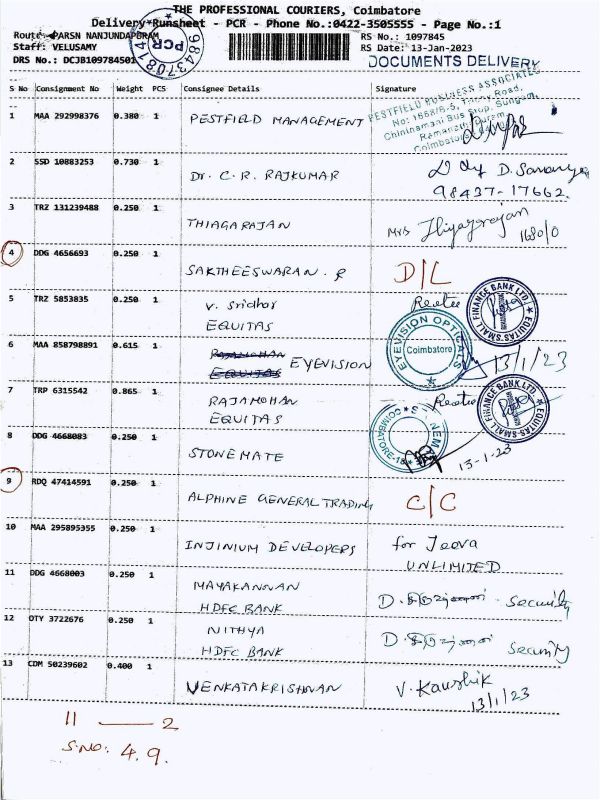 THE PROFESSIONAL COURIERS, Coimbatore
Delivery Runsheet - PCR - Phone No.:0422-3505555 - Page No.:1
Route: PARSN NANJUNDAPURAM
RS No.: 1097845
Staff: VELUSAMY
RS Date: 13-Jan-2023
DRS No.: DCJB109784501
PCR
9843708147
DOCUMENTS DELIVERY
S No Consignment No Weight PCS Consignee Details Signature
1 MAA 292998376 0.380 1 PESTFIELD MANAGEMENT
PESTFIELD BUSINESS ASSOCIATES
No: 1658/6-5, Trichy Road,
Chinnamani Bus Stop, Sungam,
Ramanathapuram,
2 SSD 10883253 0.730 1 Dr. C. R. RAJKUMAR D. Saranya
98437-17662.
3 TRZ 131239488 0.250 1 THIAGARAJAN Mrs Thiyagarajan
1680/0
4 DDG 4656693 0.250 1 SAKTHEESWARAN. R D/L
5 TRZ 5853835 0.250 1 V. Sridhar
EQUITAS
EQUITAS SMALL FINANCE BANK LTD.
6 MAA 858798891 0.615 1 RAJAMOHAN
EQUITAS EYEVISION
EYEVISION OPTICALS
Coimbatore
13/1/23
7 TRP 6315542 0.865 1 RAJAMOHAN
EQUITAS
EQUITAS SMALL FINANCE BANK LTD.
8 DDG 4668083 0.250 1 STONEMATE
COIMBATORE-18
13-1-23
9 RDQ 47414591 0.250 1 ALPHINE GENERAL TRADING C/C
10 MAA 295895355 0.250 1 INJINIUM DEVELOPERS for Jeeva
UNLIMITED
11 DDG 4668003 0.250 1 MAYAKANNAN
HDFC BANK Security
12 OTY 3722676 0.250 1 NITHYA
HDFC BANK Security
13 CDM 50239602 0.400 1 VENKATAKRISHNAN V. Kaushik
13/1/23
11 — 2
S.NO: 4. 9.